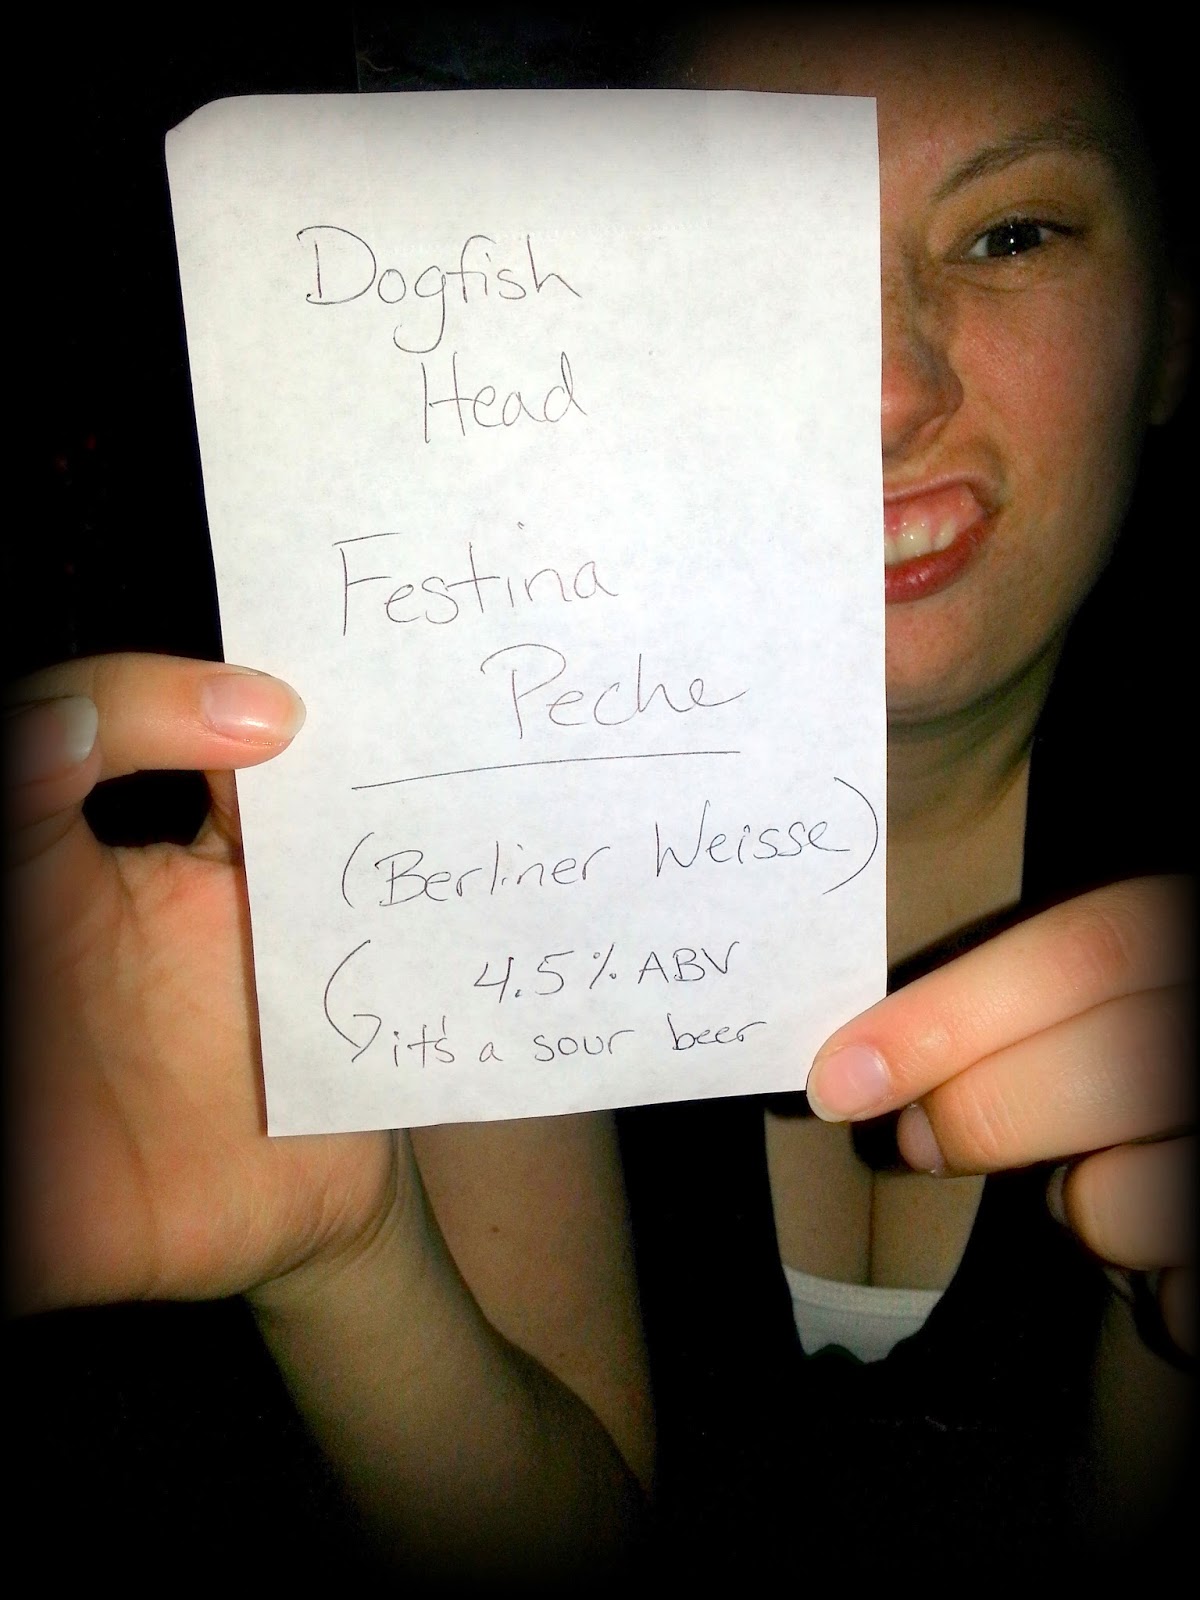 Dogfish
Head
Festina
Peche
(Berliner Weisse)
4.5% ABV
it's a sour beer